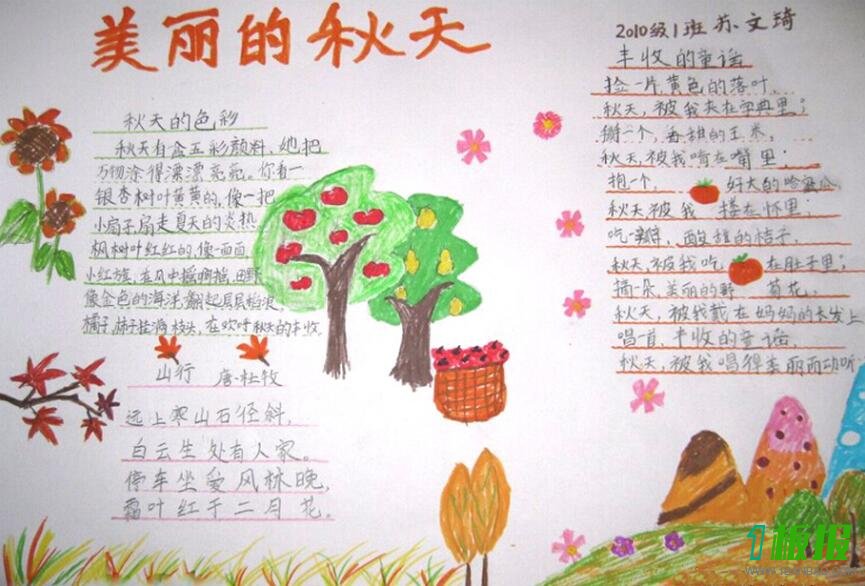 美丽的秋天
秋天的色彩
秋天有盒五彩颜料,她把
万物涂得漂漂亮亮。你看—
银杏树叶黄黄的,像一把
小扇子,扇走夏天的炎热
枫树叶红红的,像一面面
小红旗,在风中摇啊摇,田野
像金色的海洋,翻起层层稻浪。
橘子,柿子挂满枝头,在欢呼秋天的丰收。
山行 唐·杜牧
远上寒山石径斜,
白云生处有人家。
停车坐爱风林晚,
霜叶红于二月花。
2010级1班 苏文琦
丰收的童谣
捡一片,黄色的落叶,
秋天,被我夹在字典里;
掰一个,香甜的玉米,
秋天,被我啃在嘴里;
抱一个, 好大的哈蜜瓜
秋天被我 搂在怀里;
吃一瓣, 酸甜的桔子,
秋天,被我吃 在肚子里;
摘一朵,美丽的野 菊花,
秋天,被我戴在妈妈的长发上
唱一首,丰收的童谣
秋天,被我唱得美丽而动听
1板报